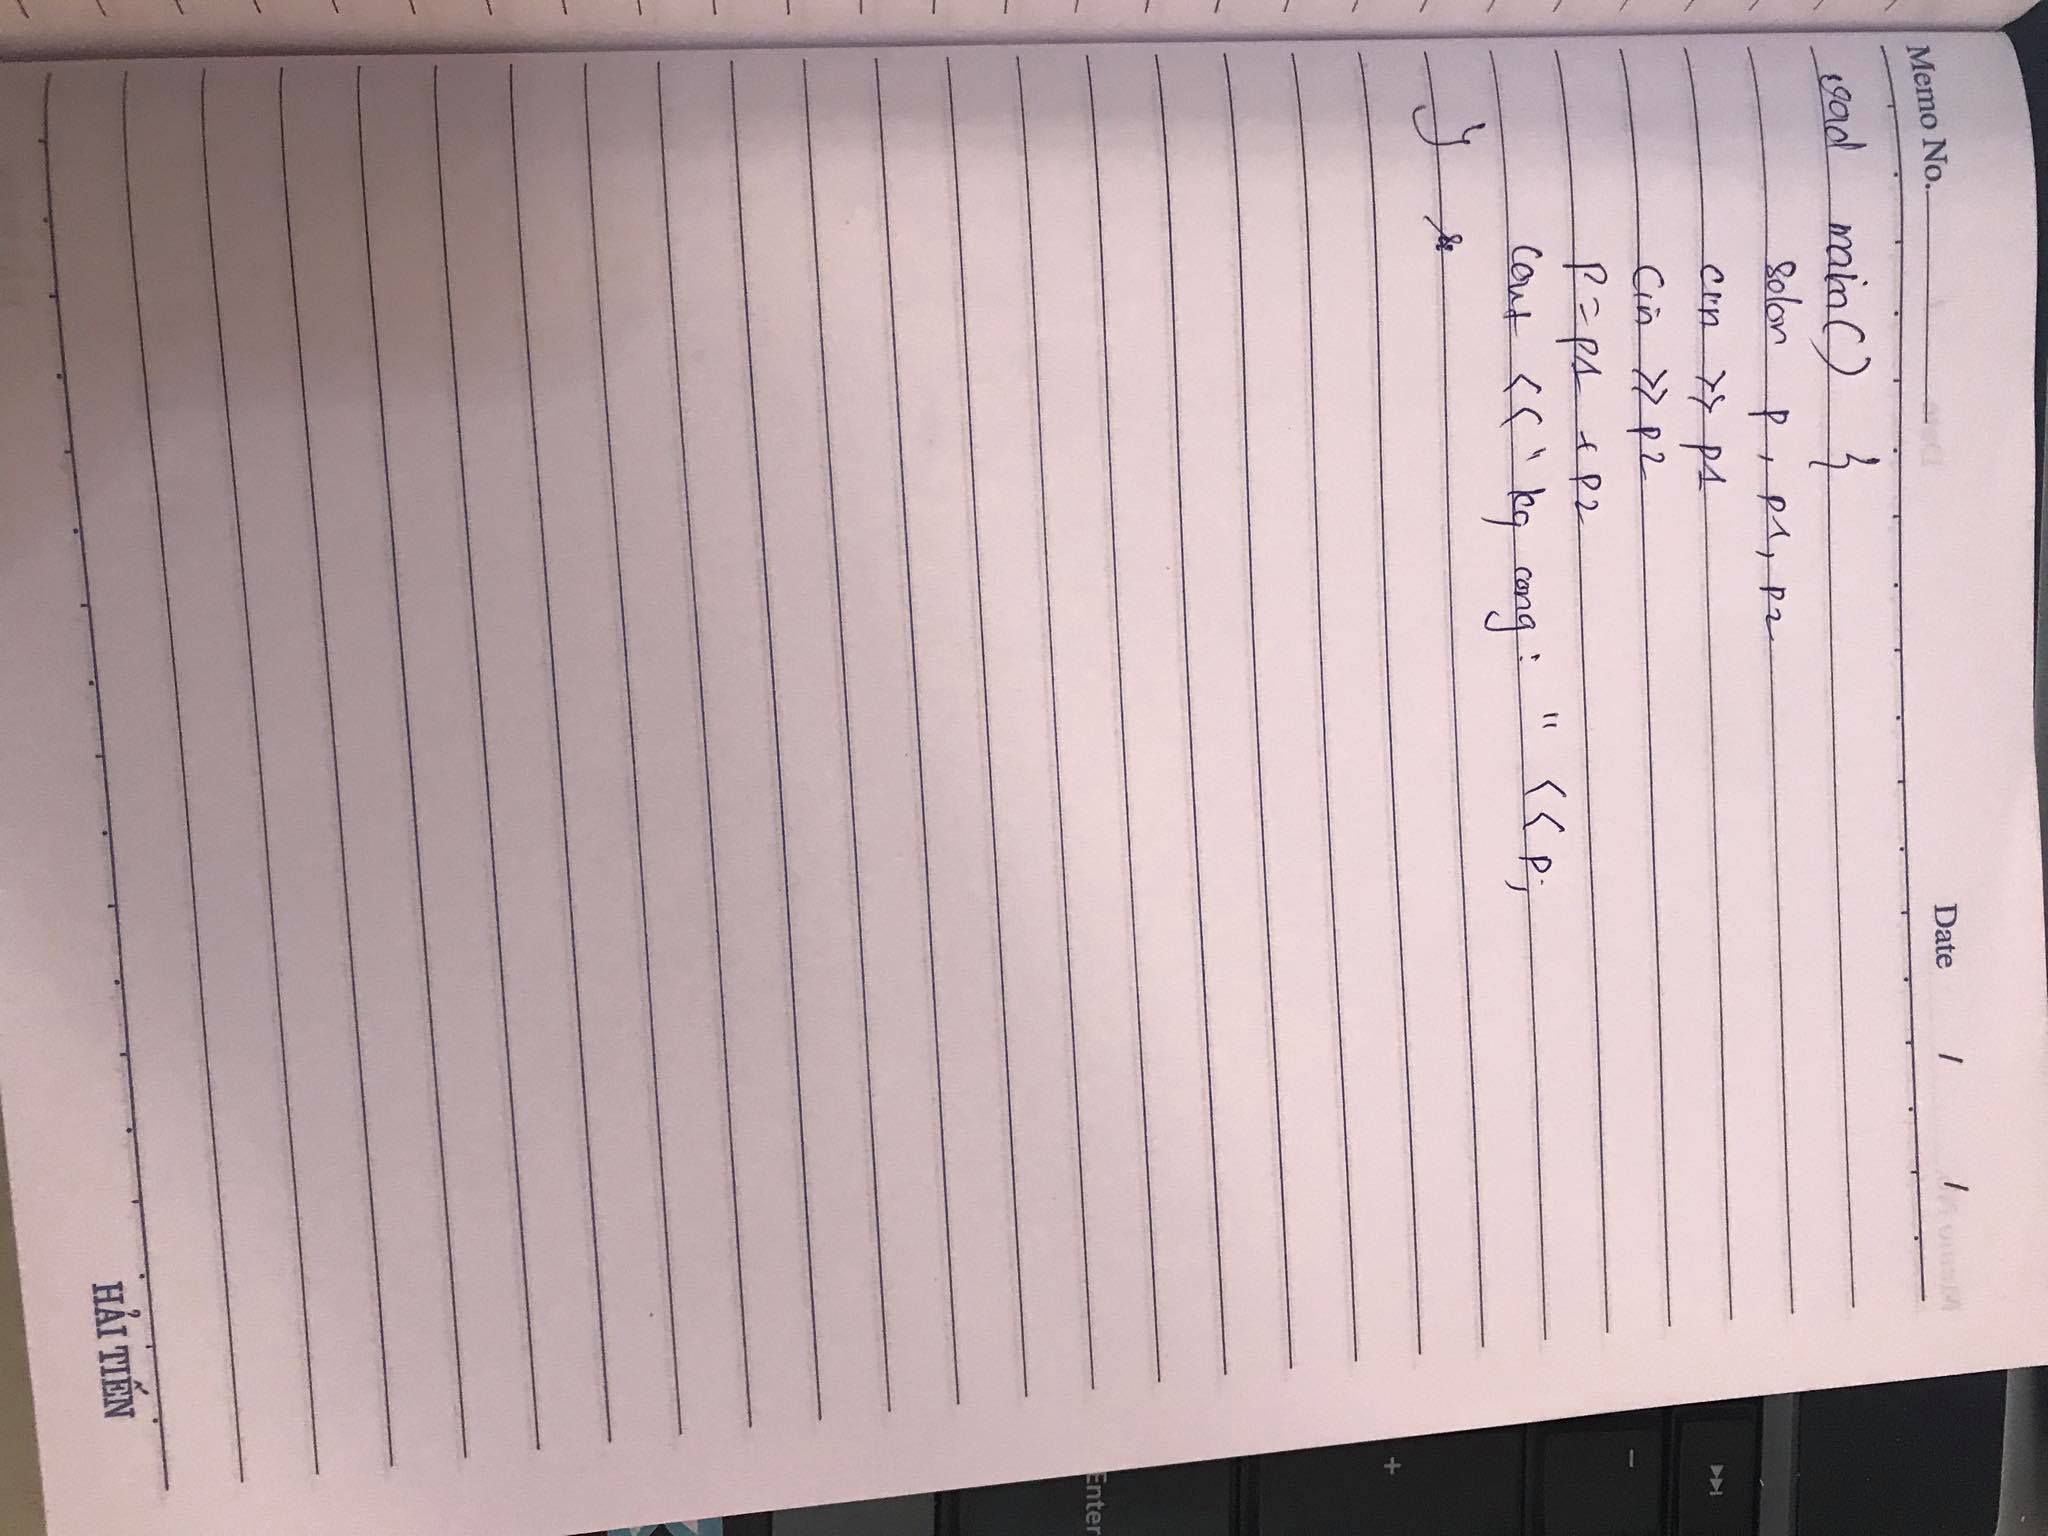 Memo No. Date / /
void main() {
solon p, p1, p2
cin >> p1
cin >> p2
p = p1 + p2
cout << " kq cong : " << p;
}
HẢI TIẾN
Enter
+
-